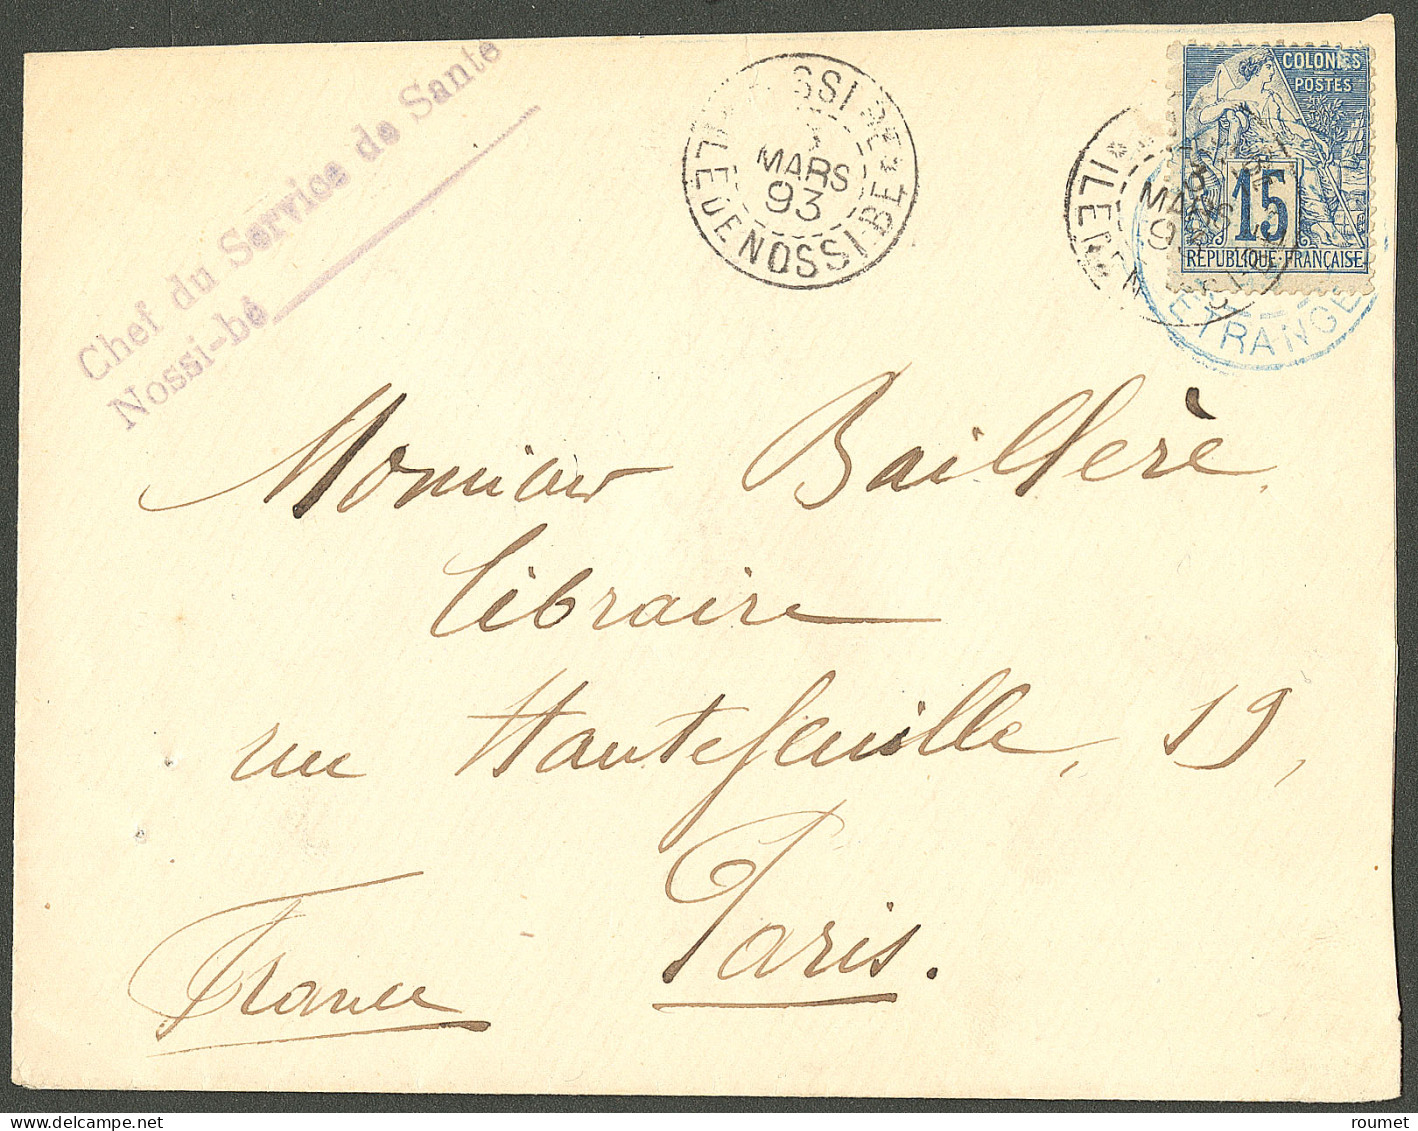 Chef du Service de Santé
Nossi-bé
NOSSI BÉ
MARS
93
ILE DE NOSSI-BÉ
COLONIES
POSTES
15
RÉPUBLIQUE FRANÇAISE
MARS
ETRANGE
Monsieur Baillère,
Libraire
rue Hautefeuille, 19,
Paris.
France
roumet